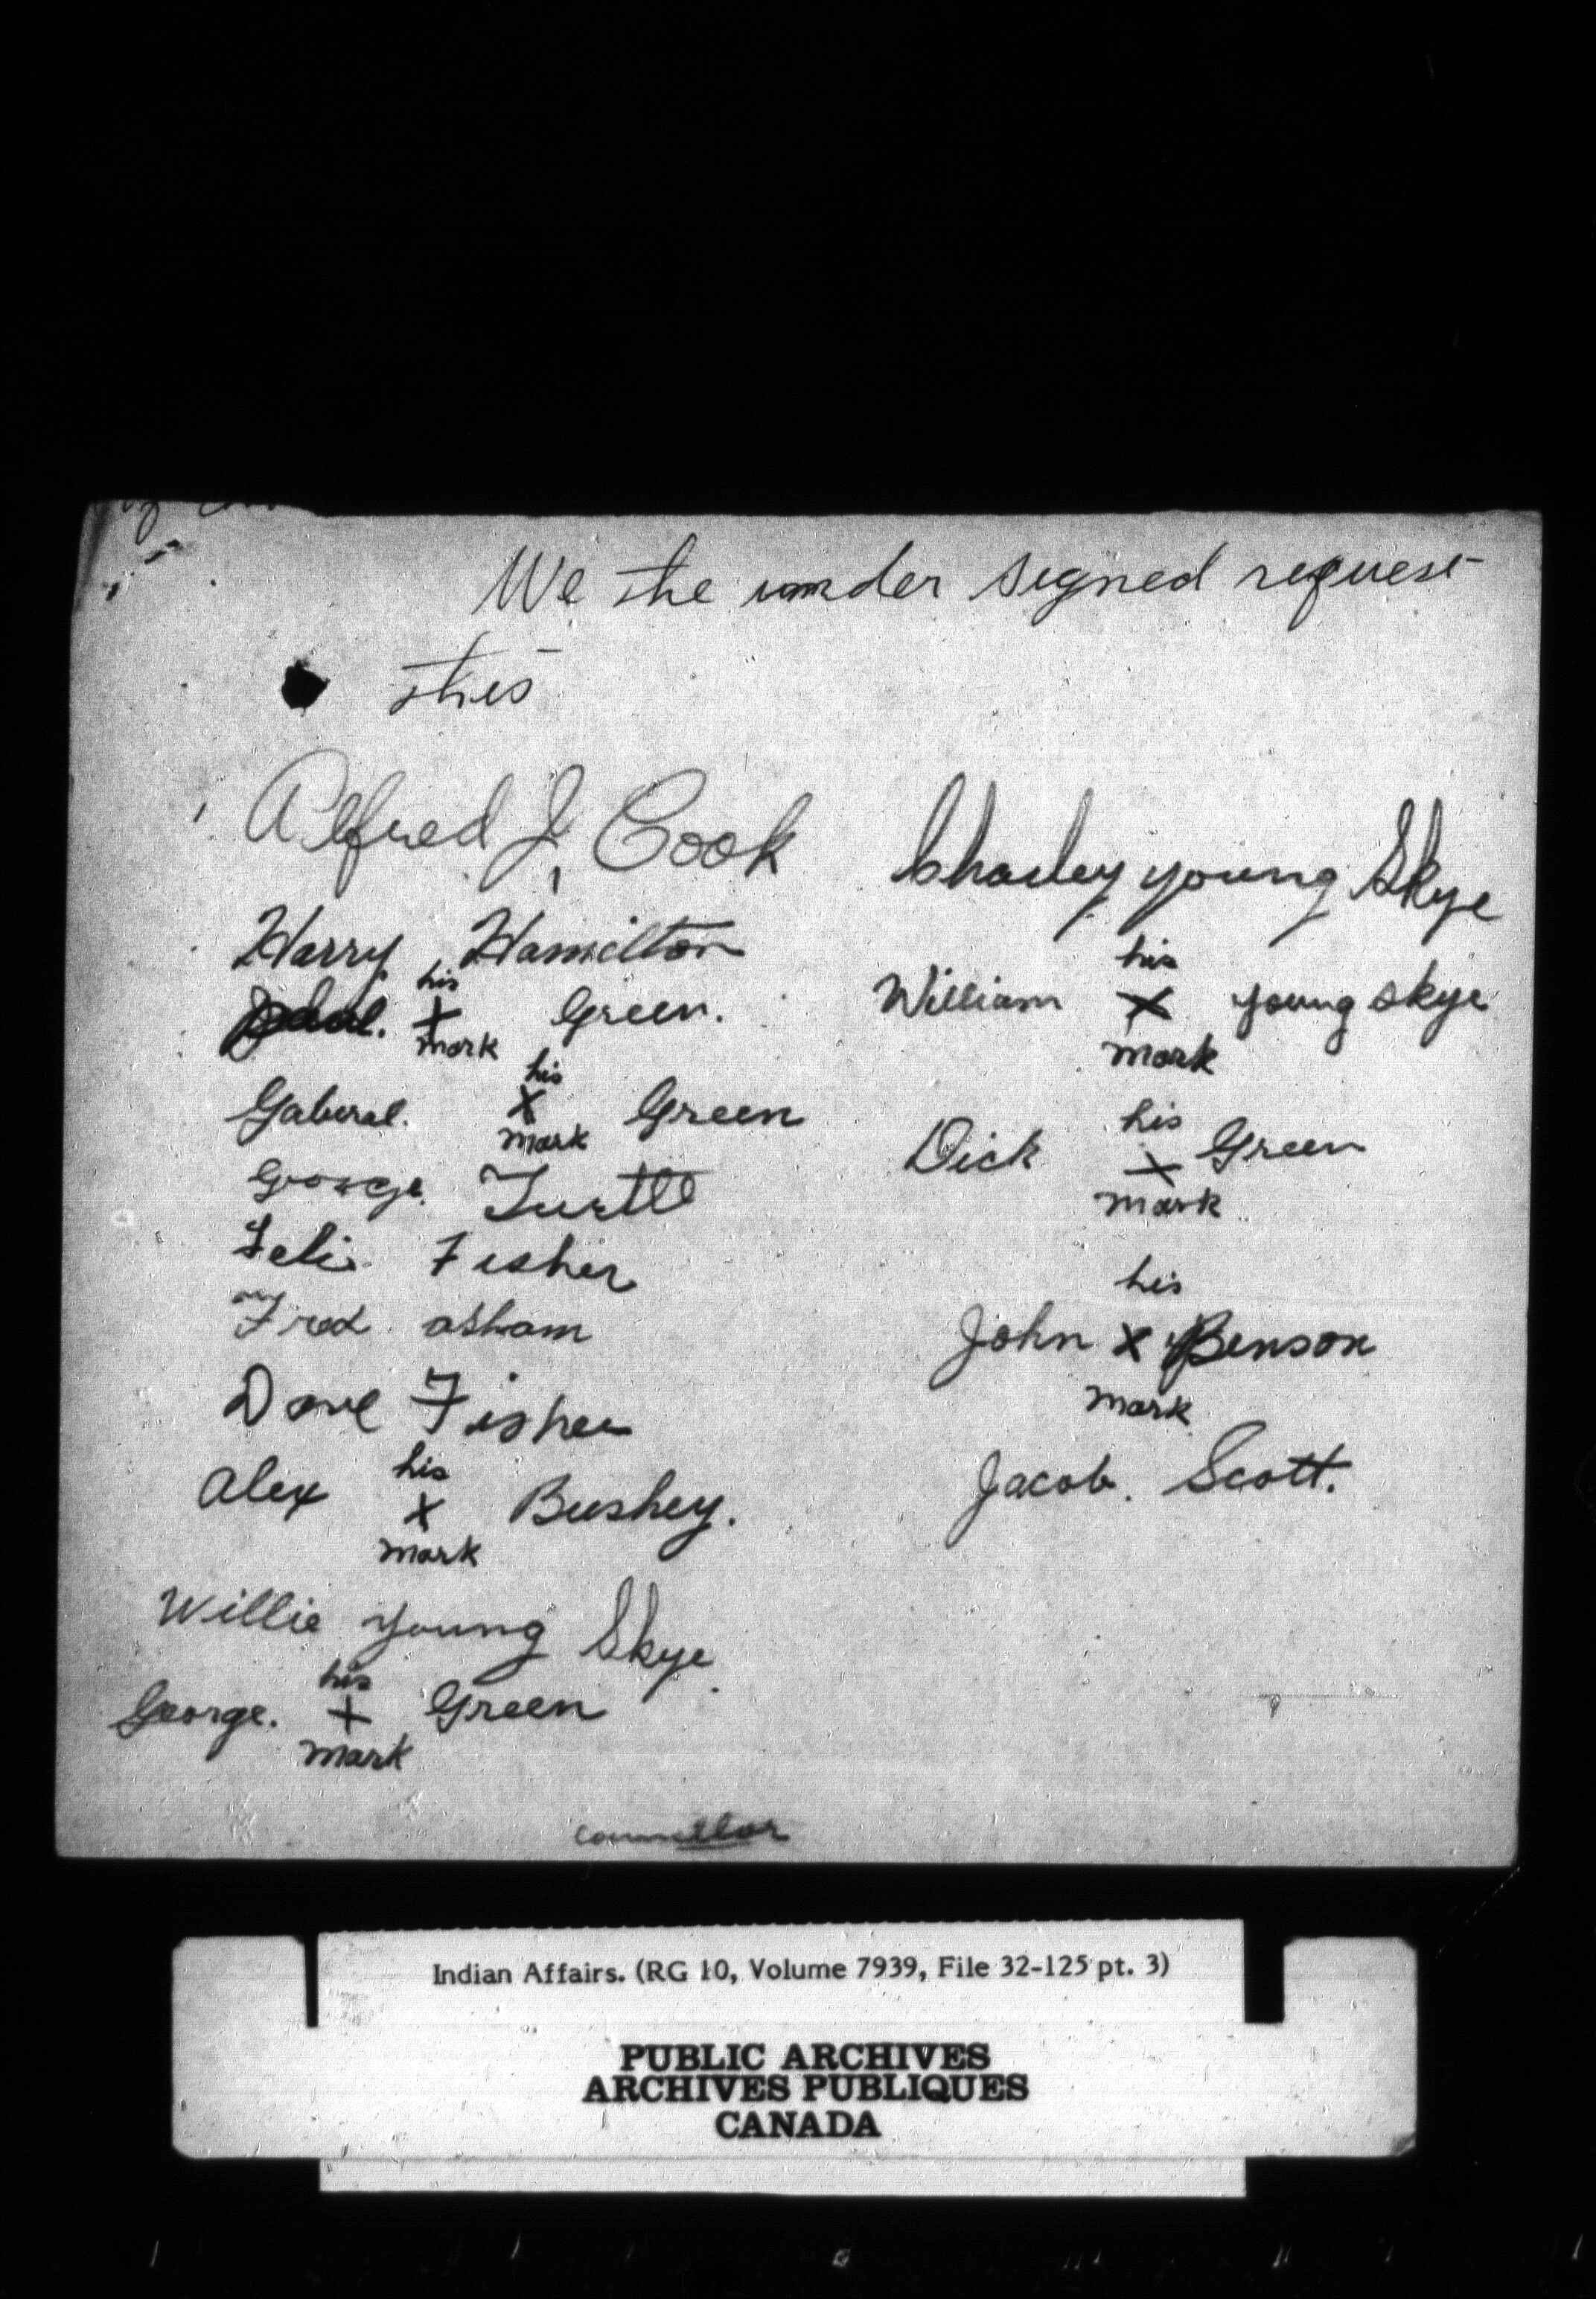 We the under signed request
this
Alfred J, Cook
Harry Hamilton
his
+ Green.
mark
his
Gaberal. X Green
mark
George. Turtle
Felix Fisher
Fred asham
Dave Fisher
his
Alex X Bushey.
mark
Willie young Skye
his
George. + Green
mark
Charley young Skye
his
William X young skye
mark
his
Dick X Green
mark
his
John X Benson
mark
Jacob. Scott.
councellor
Indian Affairs. (RG 10, Volume 7939, File 32-125 pt. 3)
PUBLIC ARCHIVES
ARCHIVES PUBLIQUES
CANADA